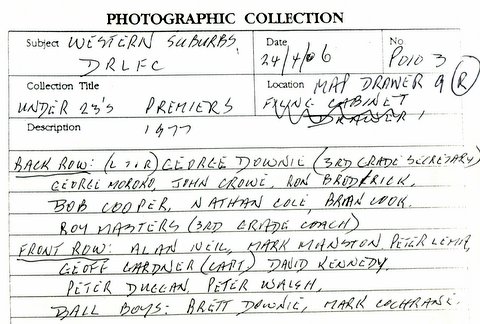 PHOTOGRAPHIC COLLECTION
Subject WESTERN SUBURBS DRLFC
Date 24/4/06
No P010 3
Collection Title UNDER 23's PREMIERS
Location MAP DRAWER 9 (R)
FILING CABINET
DRAWER 1
Description 1977
BACK ROW: (L to R) GEORGE DOWNIE (3RD GRADE SECRETARY)
GEORGE MOROKO, JOHN CROWE, RON BRODRICK,
BOB COOPER, NATHAN COLE, BRIAN COOK,
ROY MASTERS (3RD GRADE COACH)
FRONT ROW: ALAN NEIL, MARK MANSTON, PETER
GEOFF GARDNER (CAPT) DAVID KENNEDY,
PETER DUGGAN, PETER WALSH,
BALL BOYS: BRETT DOWNIE, MARK COCHRANE.